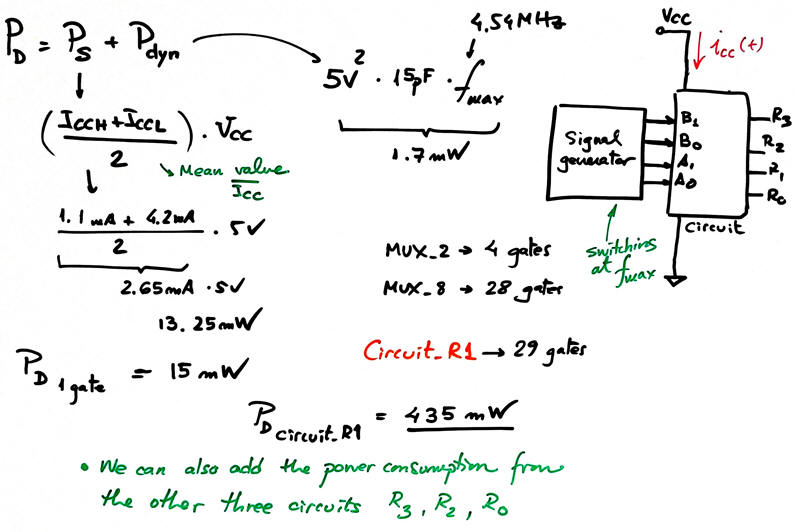 P_D = P_S + P_dyn
5V² · 15pF · f_max
4.54MHz
1.7mW
(I_CCH + I_CCL / 2) · V_CC
Mean value
I_CC
1.1mA + 4.2mA / 2 · 5V
2.65mA · 5V
13.25mW
P_D 1 gate = 15 mW
Vcc
i_cc(t)
Signal generator
B1
B0
A1
A0
R3
R2
R1
R0
Circuit
switching
at f_max
MUX_2 → 4 gates
MUX_8 → 28 gates
Circuit_R1 → 29 gates
P_D Circuit_R1 = 435 mW
• We can also add the power consumption from
the other three circuits R3, R2, R0